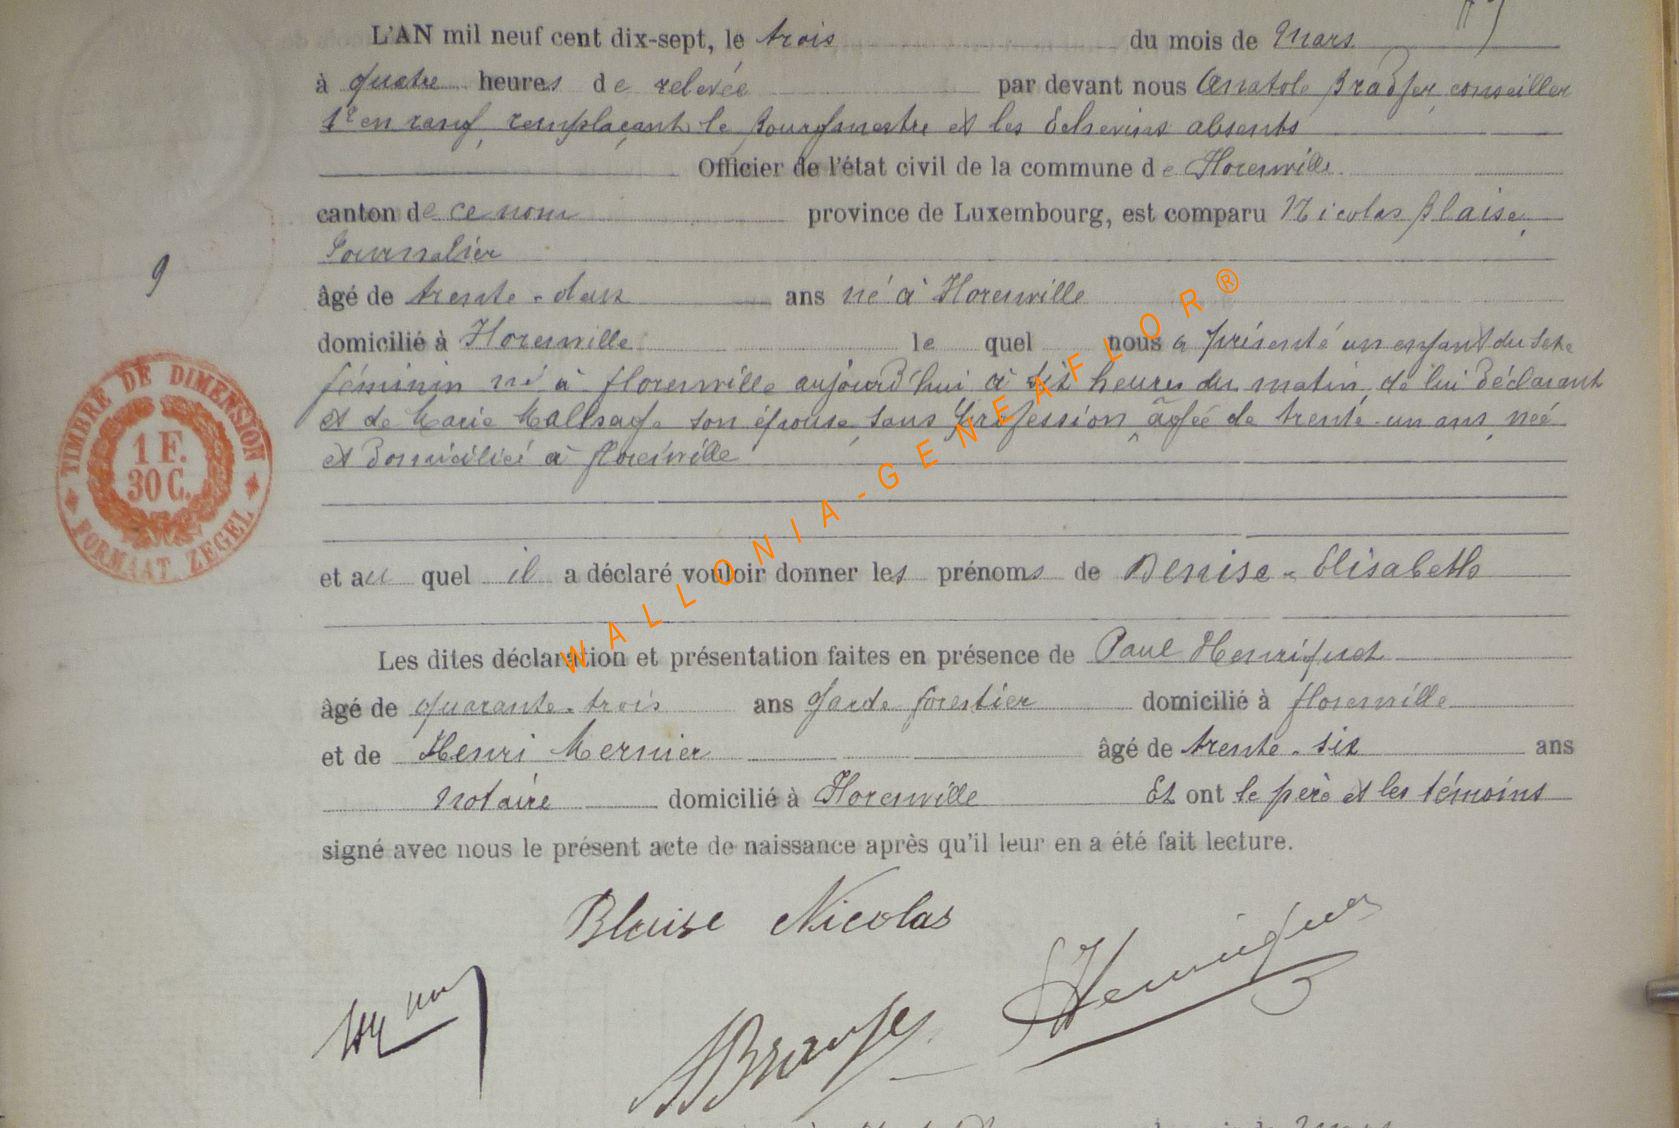 L'AN mil neuf cent dix-sept, le trois du mois de Mars
à quatre heures de relevée par devant nous Anatole conseiller
1er en rang, remplaçant le Bourgmestre et les Echevins absents
Officier de l'état civil de la commune de Florenville
canton de ce nom province de Luxembourg, est comparu Nicolas Blaise,
Journalier
9
âgé de trente-deux ans né à Florenville
domicilié à Florenville le quel nous a présenté un enfant du sexe
féminin né à florenville aujourd'hui à heures du matin, de lui déclarant
et de Marie son épouse, sans profession, âgée de trente-un ans, née
et domiciliée à florenville
TIMBRE DE DIMENSION
1 F.
30 C.
FORMAAT ZEGEL
et au quel il a déclaré vouloir donner les prénoms de Denise-Elisabeth
Les dites déclaration et présentation faites en présence de Paul Henriquet
âgé de quarante-trois ans garde forestier domicilié à florenville
et de Henri Mernier âgé de trente-six ans
notaire domicilié à Florenville Et ont le père et les témoins
signé avec nous le présent acte de naissance après qu'il leur en a été fait lecture.
Blaise Nicolas
Henriquet
WALLONIA-GENEAFLOR®